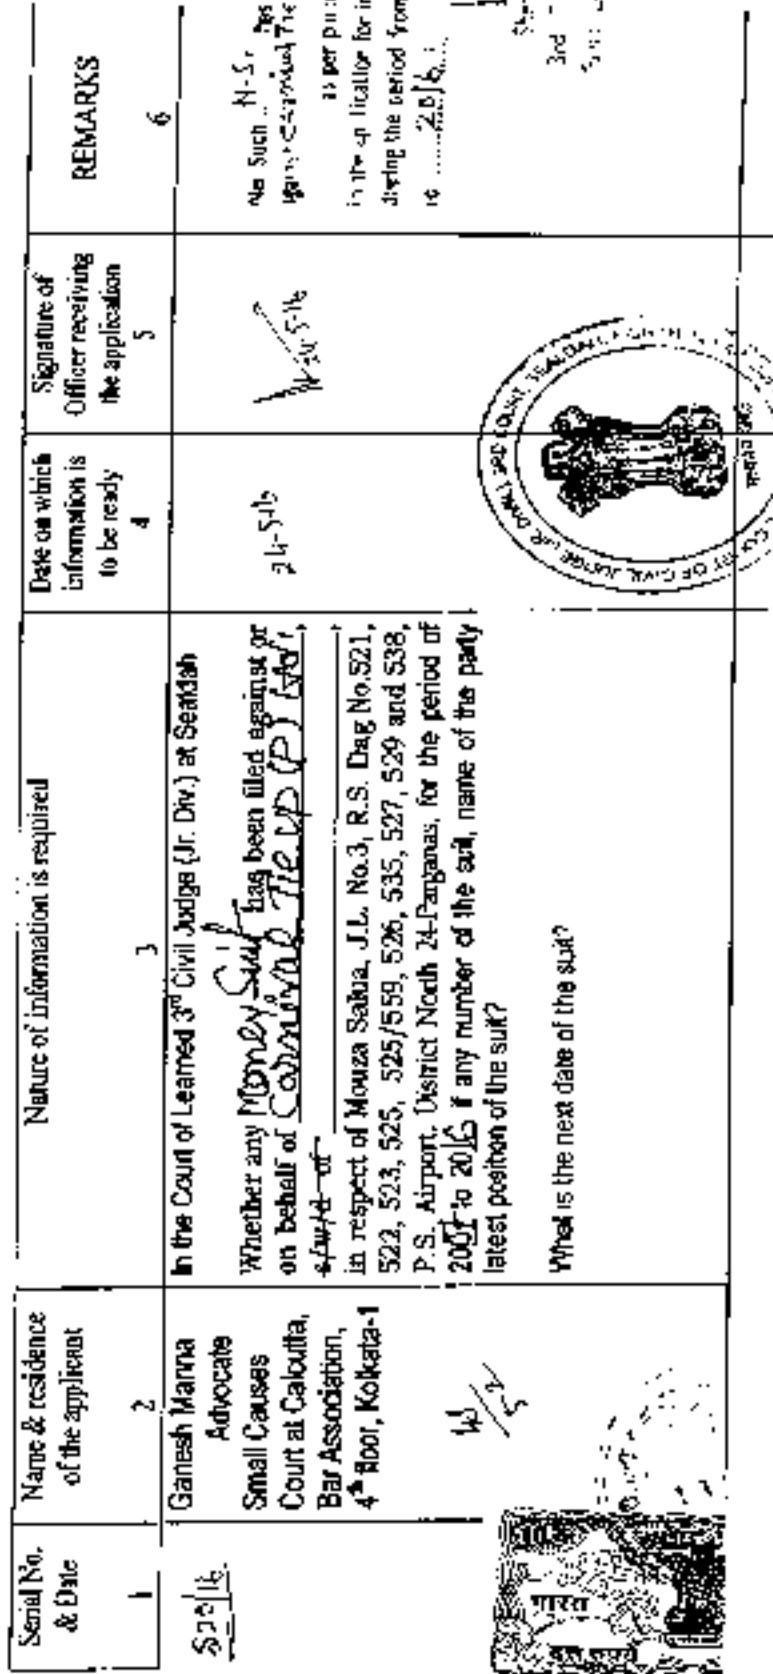 Serial No.
& Date
1
Name & residence
of the applicant
2
Nature of information is required
3
Date on which
information is
to be ready
4
Signature of
Officer receiving
the application
5
REMARKS
6
Ganesh Manna
Advocate
Small Causes
Court at Calcutta,
Bar Association,
4th floor, Kolkata-1
In the Court of Learned 3rd Civil Judge (Jr. Div.) at Sealdah
Whether any Money Suit has been filed against or
on behalf of Carnival Tie up (P) Ltd,
s/w/d of
in respect of Mouza Salua, J.L. No.3, R.S. Dag No.521,
522, 523, 525, 525/559, 526, 535, 527, 529 and 538,
P.S. Airport, District North 24-Parganas, for the period of
to 2016 if any number of the suit, name of the party
latest position of the suit?
What is the next date of the suit?
24-5-16
24-5-16
No Such
as per
in the application for
during the period from
to 2016
3rd
COURT OF CIVIL JUDGE (JR. DIVN.) 3RD COURT, SEALDAH